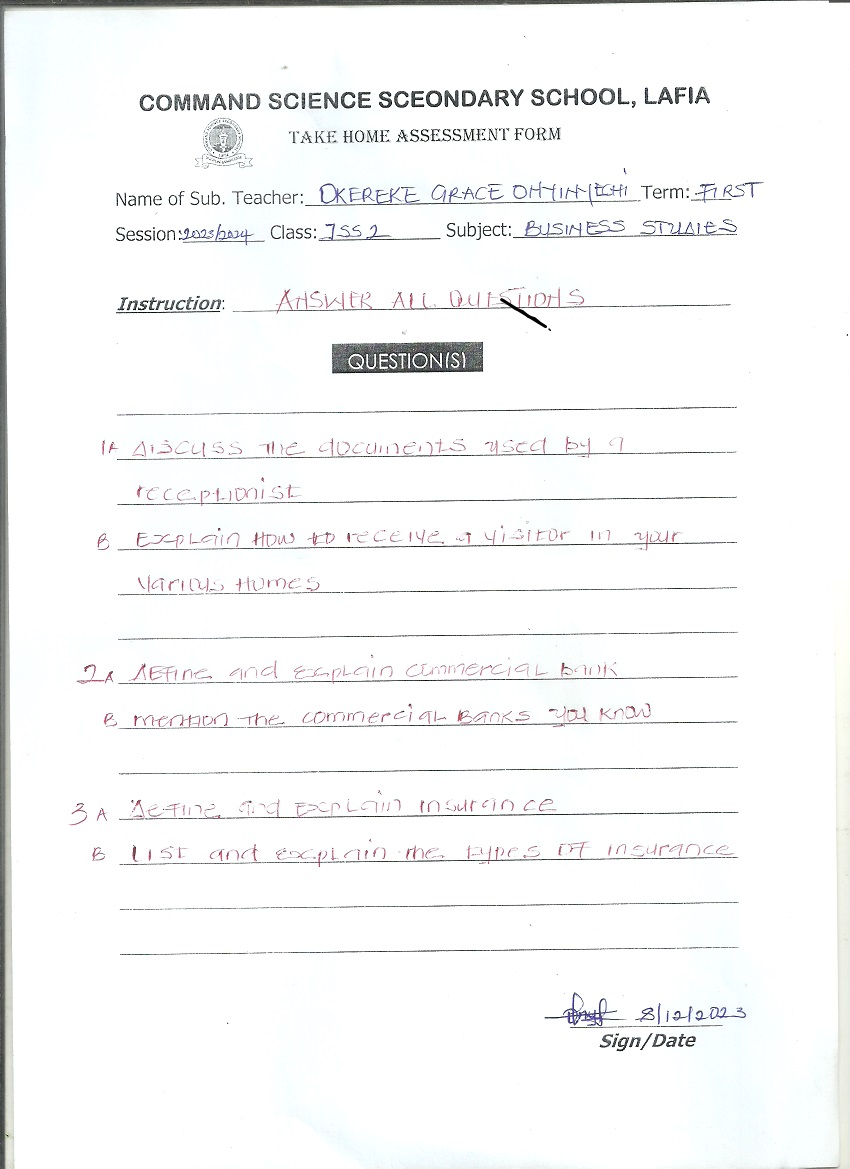 COMMAND SCIENCE SCEONDARY SCHOOL, LAFIA
TAKE HOME ASSESSMENT FORM
Name of Sub. Teacher: OKEREKE GRACE Term: FIRST
Session: 2023/2024 Class: JSS 2 Subject: BUSINESS STUDIES
Instruction: ANSWER ALL QUESTIONS
QUESTION(S)
1A DISCUSS THE documents used by a
receptionist
B Explain How to receive a visitor in your
various Homes
2A DEFine and explain commercial bank
B mention the commercial Banks you know
3A Define and Explain insurance
B LIST and explain the types OF insurance
8/12/2023
Sign/Date